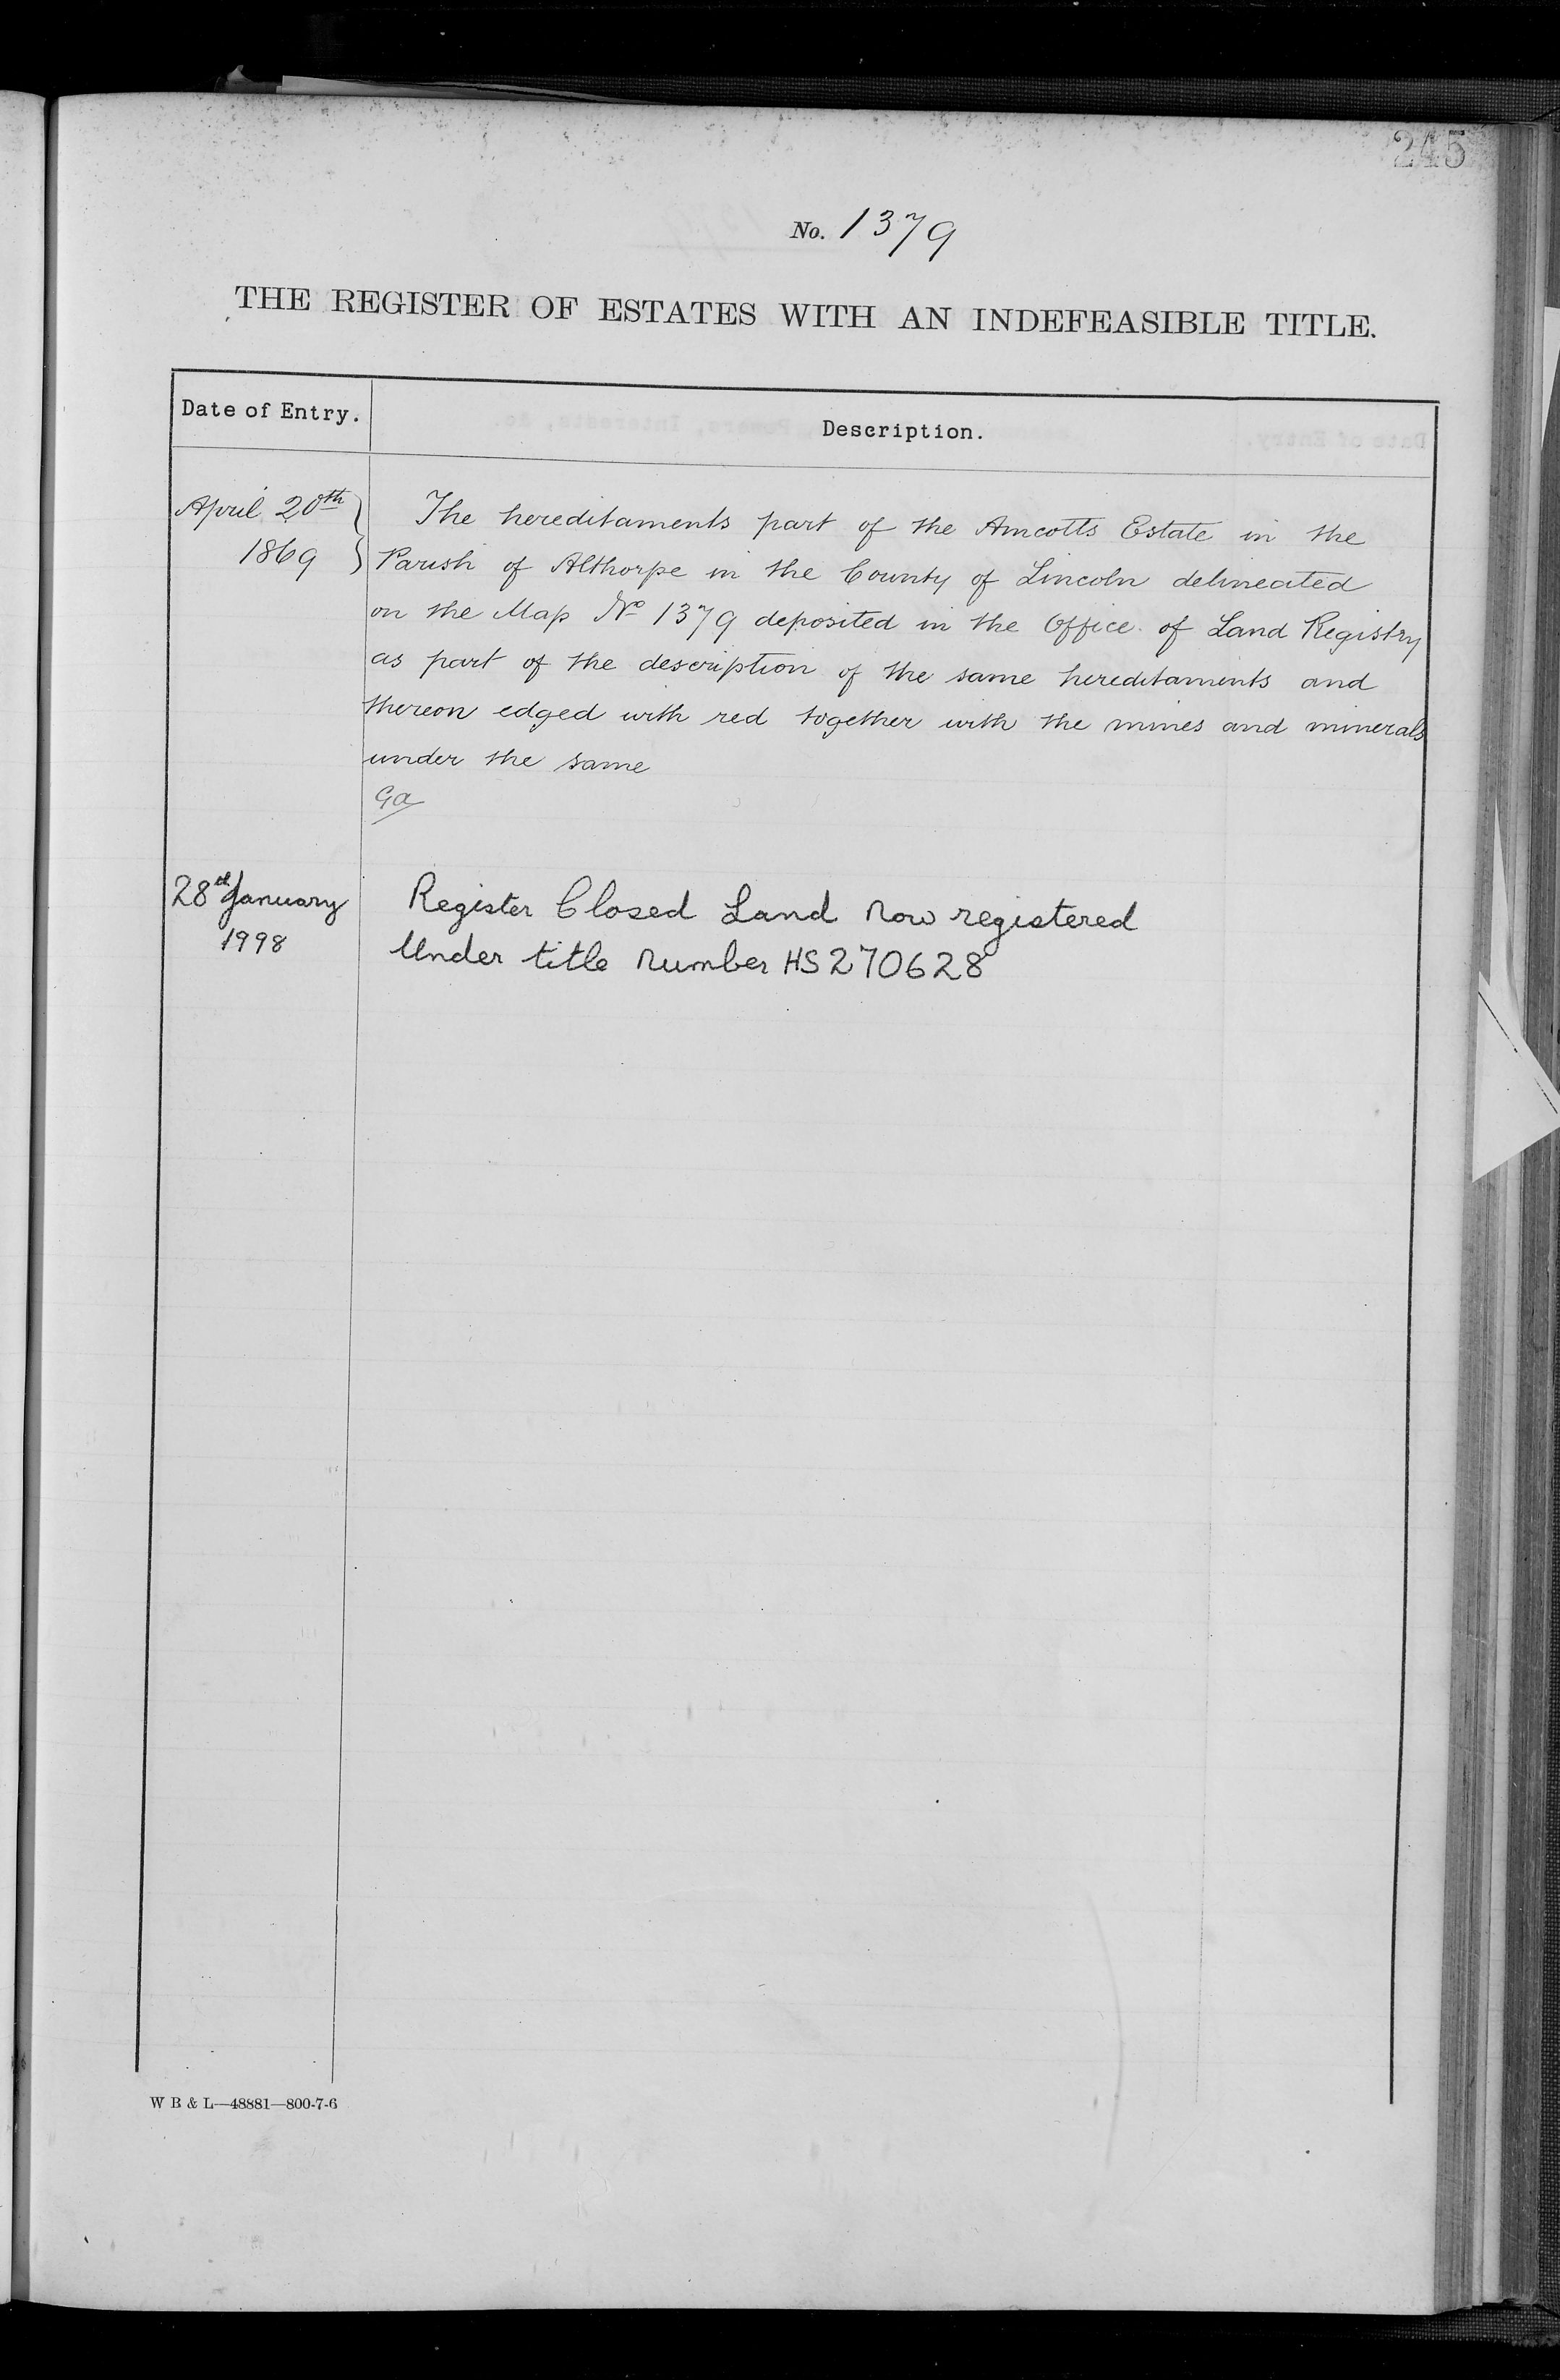 245
No. 1379
THE REGISTER OF ESTATES WITH AN INDEFEASIBLE TITLE.
Date of Entry.
Description.
April 20th
1869
The hereditaments part of the Amcotts Estate in the
Parish of Althorpe in the County of Lincoln delineated
on the Map No 1379 deposited in the Office of Land Registry
as part of the description of the same hereditaments and
thereon edged with red together with the mines and minerals
under the same
Ga
28th January
1998
Register Closed Land now registered
Under title number HS270628
W B & L—48881—800-7-6